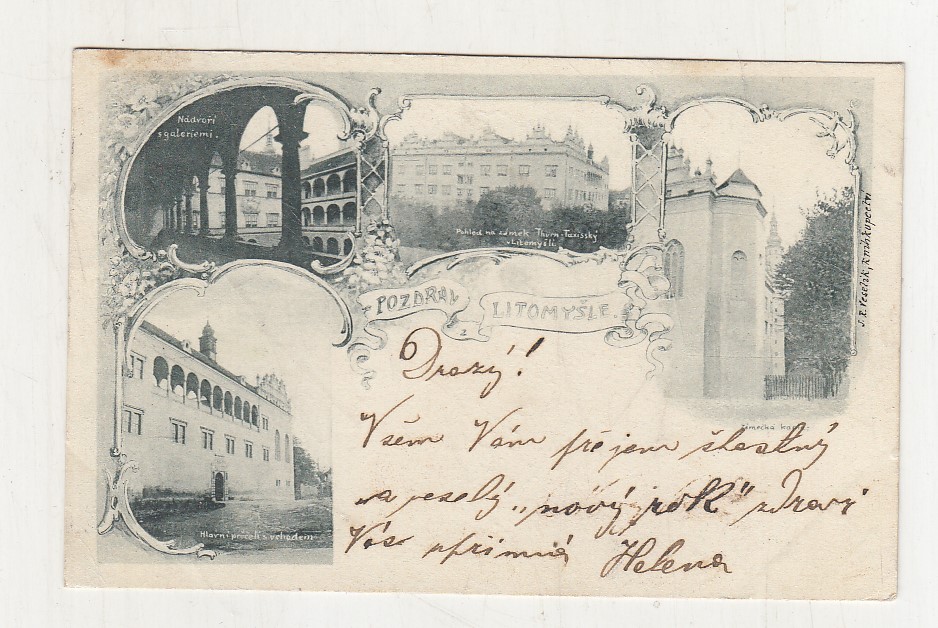 Nádvoří
s galeriemi.
Pohled na zámek Thurn-Taxisský
v Litomyšli.
J. R. Veselík, knihkupectví
POZDRAV
z
LITOMYŠLE.
Zámecká kaple
Hlavní průčelí s vchodem
Drazý!
Všem Vám přejem šťastný
a veselý „nový rok" zdraví
Vás upřímná Helena